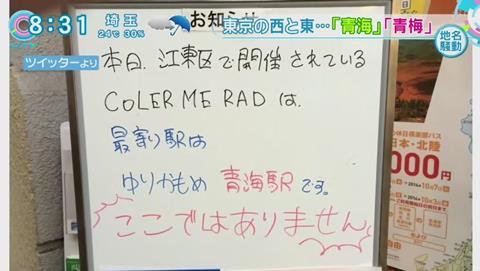 8:31
埼玉
24℃ 30%
東京の西と東…「青海」「青梅」
地名
騒動
ツイッターより
お知らせ
本日、江東区で開催されている
COLER ME RADは、
最寄り駅は
ゆりかもめ 青海駅です。
ここではありません
の休日倶楽部パス
日本・北陸
000円
2016
自由